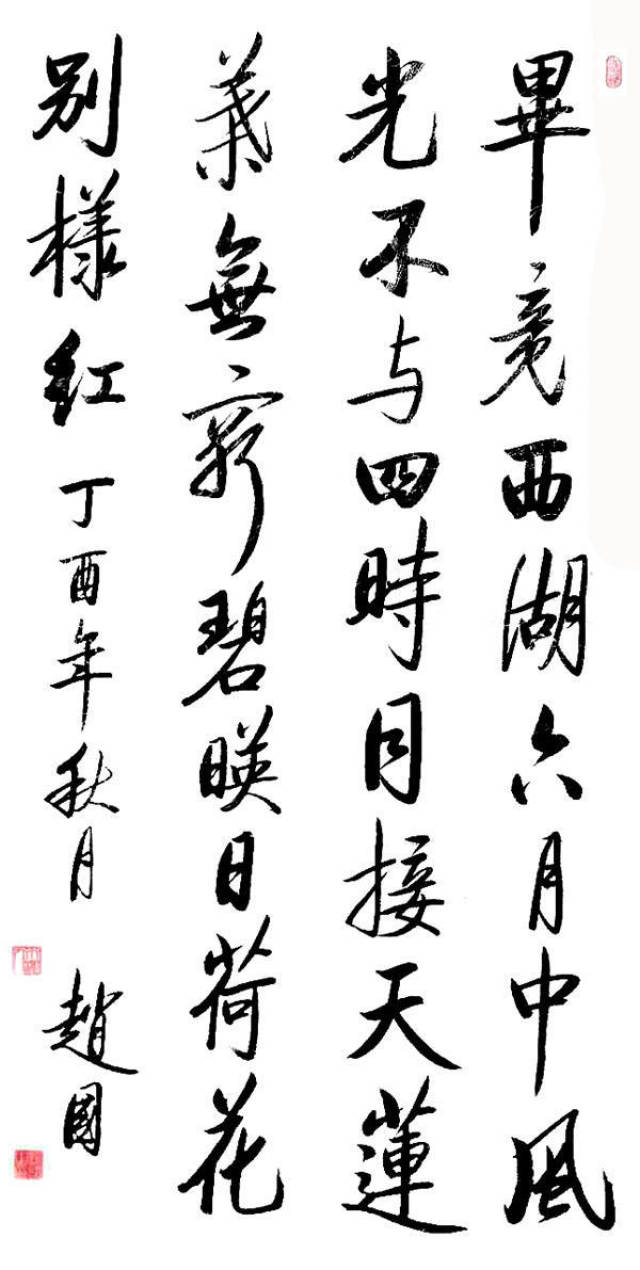 畢竟西湖六月中風
光不与四時同接天蓮
葉無窮碧映日荷花
別樣紅 丁酉年秋月 趙國